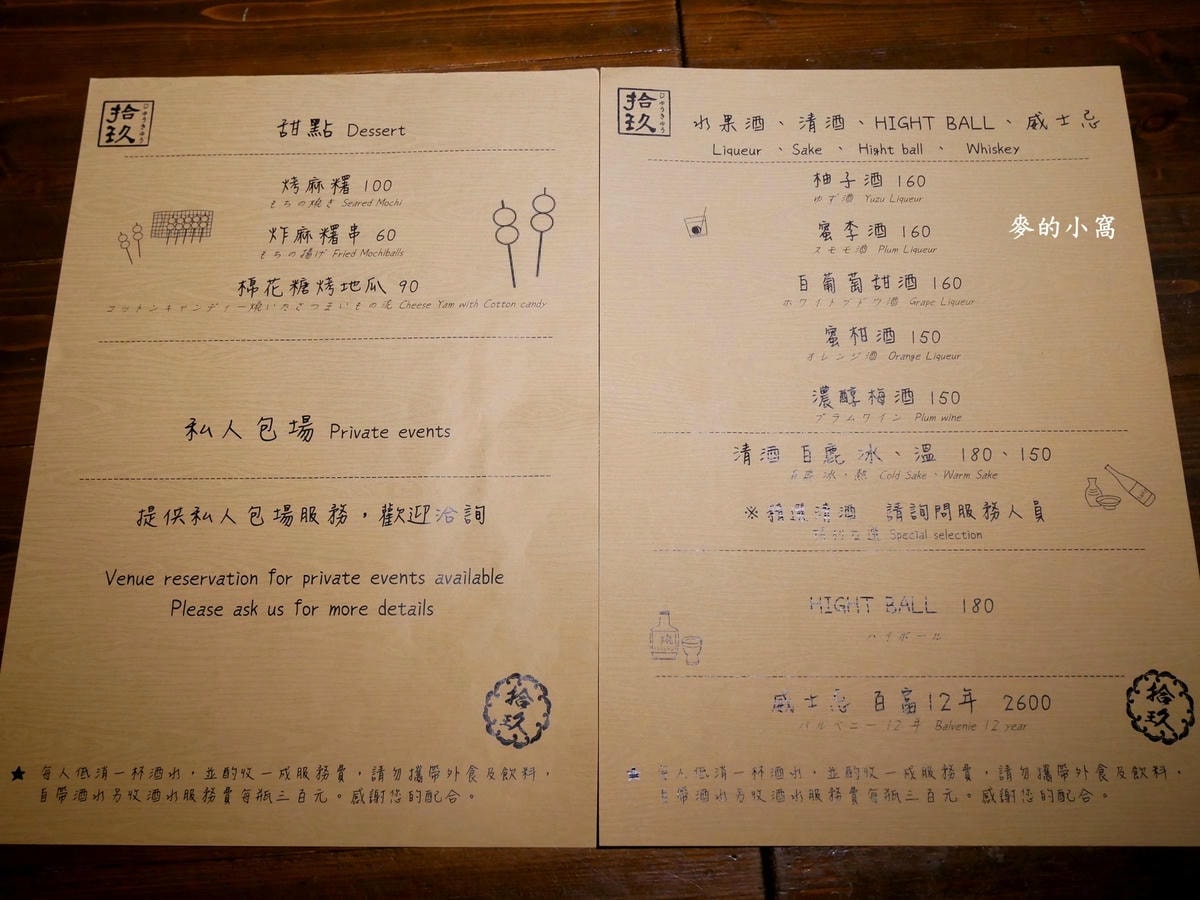 拾玖
じゅうきゅう
甜點 Dessert
烤麻糬 100
もちの焼き Seared Mochi
炸麻糬串 60
もちの揚げ Fried Mochiballs
棉花糖烤地瓜 90
コットンキャンディー焼いたさつまいもの泥 Cheese Yam with Cotton candy
私人包場 Private events
提供私人包場服務，歡迎洽詢
Venue reservation for private events available
Please ask us for more details
拾玖
★ 每人低消一杯酒水，並酌收一成服務費，請勿攜帶外食及飲料，
自帶酒水另收酒水服務費每瓶三百元。感謝您的配合。
拾玖
じゅうきゅう
水果酒、清酒、HIGHT BALL、威士忌
Liqueur 、Sake 、 Hight ball 、 Whiskey
柚子酒 160
ゆず酒 Yuzu Liqueur
蜜李酒 160
スモモ酒 Plum Liqueur
麥的小窩
白葡萄甜酒 160
ホワイトブドウ酒 Grape Liqueur
蜜柑酒 150
オレンジ酒 Orange Liqueur
濃醇梅酒 150
プラムワイン Plum wine
清酒 白鹿 冰、溫 180、150
白鹿 冰、熱 Cold Sake、Warm Sake
※精選清酒 請詢問服務人員
Special selection
HIGHT BALL 180
ハイボール
威士忌 百富12年 2600
バルベニー 12年 Balvenie 12 year
拾玖
★ 每人低消一杯酒水，並酌收一成服務費，請勿攜帶外食及飲料，
自帶酒水另收酒水服務費每瓶三百元。感謝您的配合。